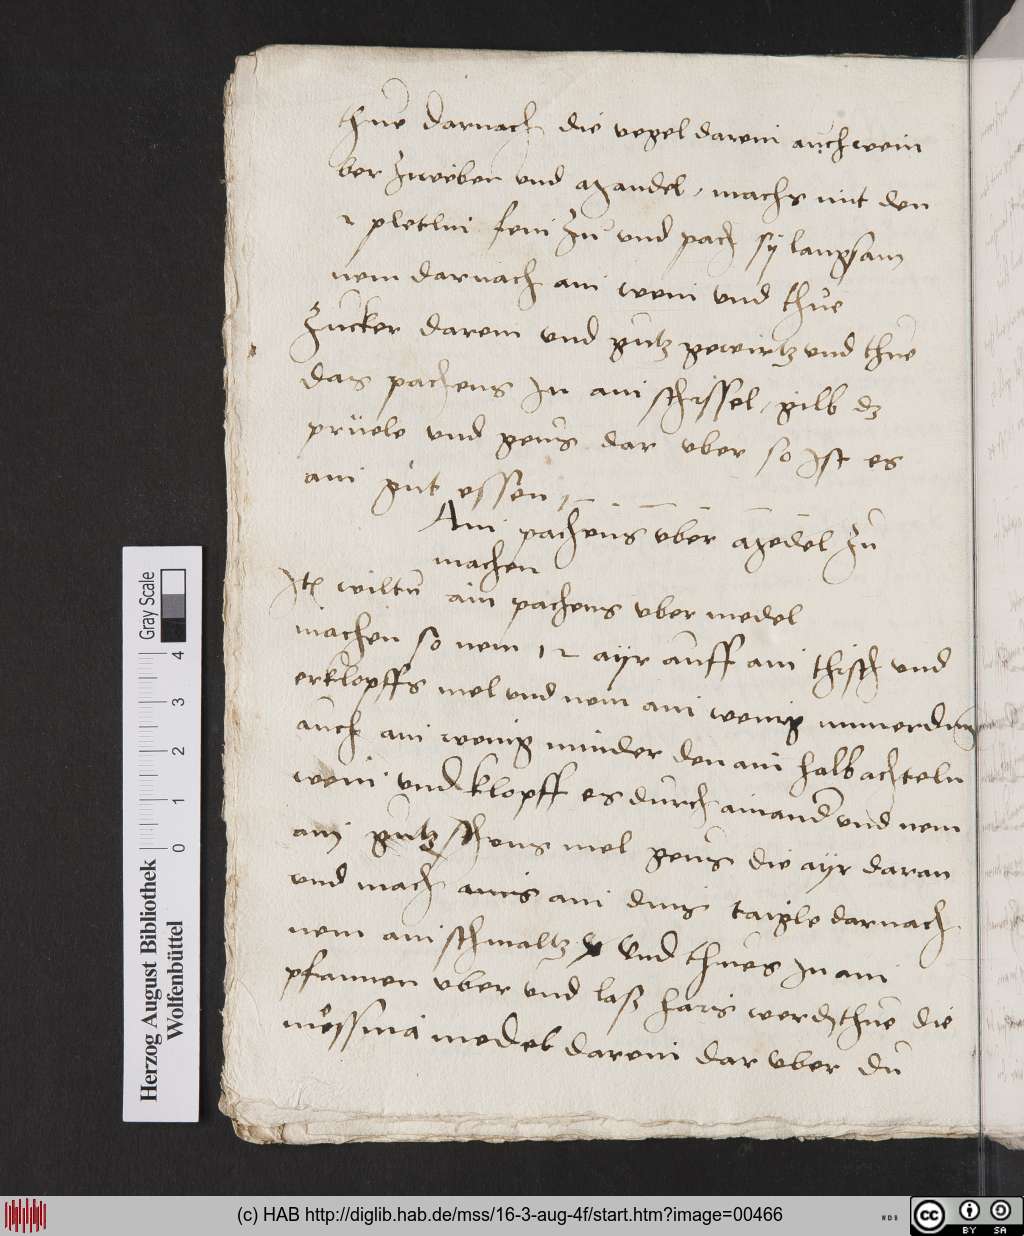 thue darnach die vegel darein auch wein
ber zweber vnd azandel, machs mit den
2 pletlin fein zu vnd pach sÿ langsam
nem darnach ain wein vnd thue
zucker darein vnd gutz gewirtz vnd thue
das pachens in ain schissel, gilb dz
prüele vnd geus dar vber so ist es
ain gut essen
Ain pachens vber medel zu
machen
Jt wiltu ain pachens vber medel
machen so nem 12 ayr auff ain thisch vnd
erklopffs mel vnd nem ain wenig
auch ain wenig minder den ain halb achteln
wein vnd klopff es durch ainand vnd nem
ain gutz schens mel geus die ayr daran
vnd mach ain dins taigle darnach
nem ain schmaltz vnd thues in ain
pfannen vber vnd lasz hais werd thue die
messina medel darein dar vber du
Herzog August Bibliothek
Wolfenbüttel
Gray Scale
0 1 2 3 4
(c) HAB http://diglib.hab.de/mss/16-3-aug-4f/start.htm?image=00466
WDB
cc BY SA